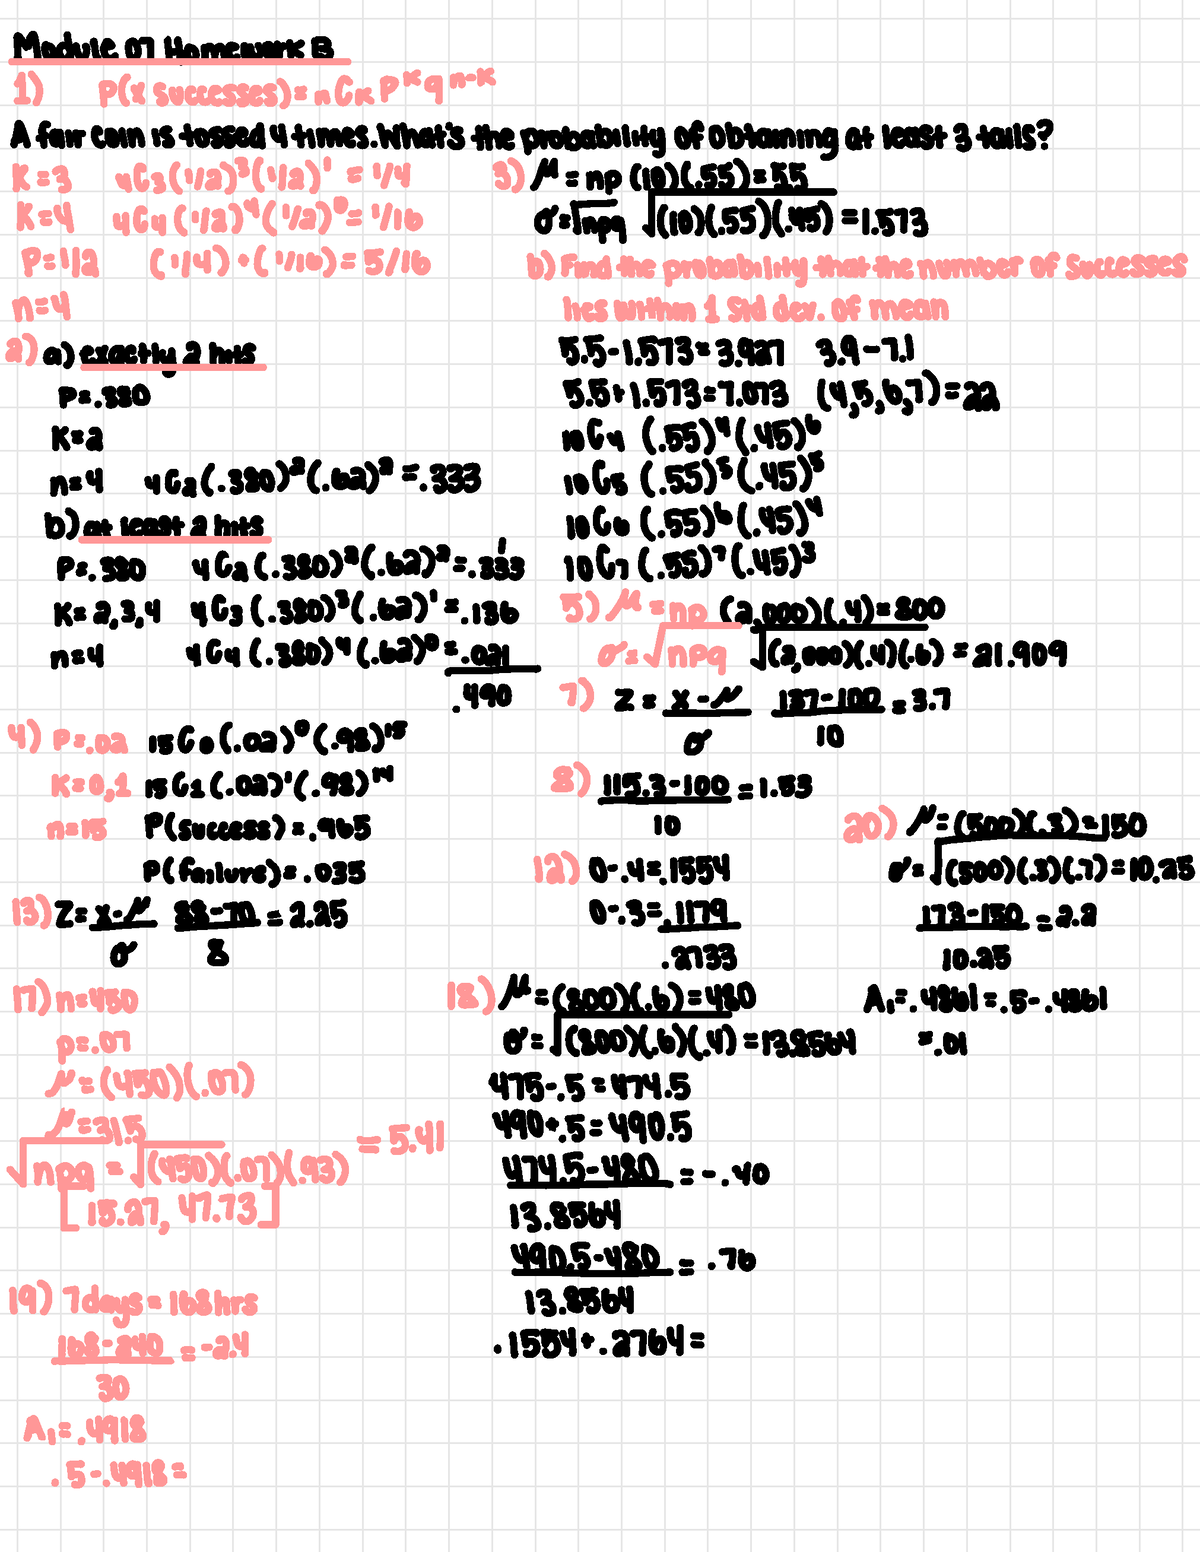 Module 07 Homework B
1) P(x successes)= nCk P^k q^n-k
A fair coin is tossed 4 times. What's the probability of obtaining at least 3 tails?
K=3 4C3(1/2)³(1/2)¹ = 1/4
K=4 4C4(1/2)⁴(1/2)⁰ = 1/16
P=1/2 (1/4)+(1/16)= 5/16
n=4
2) a) exactly 2 hits
P=.380
K=2
n=4 4C2(.380)²(.62)² =.333
b) at least 2 hits
P=.380 4C2(.380)²(.62)²=.333
K=2,3,4 4C3(.380)³(.62)¹=.136
n=4 4C4(.380)⁴(.62)⁰=.021
.490
3) μ = np (10)(.55)=55
σ=√npq √(10)(.55)(.45) =1.573
b) Find the probability that the number of successes
lies within 1 Std dev. of mean
5.5-1.573=3.927 3.9-7.1
5.5+1.573=7.073 (4,5,6,7)=22
10C4 (.55)⁴(.45)⁶
10C5 (.55)⁵(.45)⁵
10C6 (.55)⁶(.45)⁴
10C7 (.55)⁷(.45)³
4) P=.02 15C0(.02)⁰(.98)¹⁵
K=0,1 15C1(.02)¹(.98)¹⁴
n=15 P(success)=.965
P(failure)=.035
5) μ=np (2,000)(.4)=800
σ=√npq √(2,000)(.4)(.6) =21.909
7) Z = x-μ 137-100 = 3.7
σ 10
8) 115.3-100 =1.53
10
12) 0-.4=.1554
0-.3=.1179
.2733
13) Z= x-μ 88-70 = 2.25
σ 8
17) n=450
p=.07
μ=(450)(.07)
μ=31.5
√npq = √(450)(.07)(.93) = 5.41
[15.27, 47.73]
18) μ=(800)(.6)=480
σ=√(800)(.6)(.4) =13.8564
475-.5=474.5
490+.5=490.5
474.5-480 = -.40
13.8564
490.5-480 = .76
13.8564
.1554+.2764=
19) 7 days = 168hrs
168-240 =-2.4
30
A₁=.4918
.5-.4918=
20) μ=(500)(.3)=150
σ=√(500)(.3)(.7)=10.25
173-150 =2.2
10.25
A₁=.4861=.5-.4861
=.01